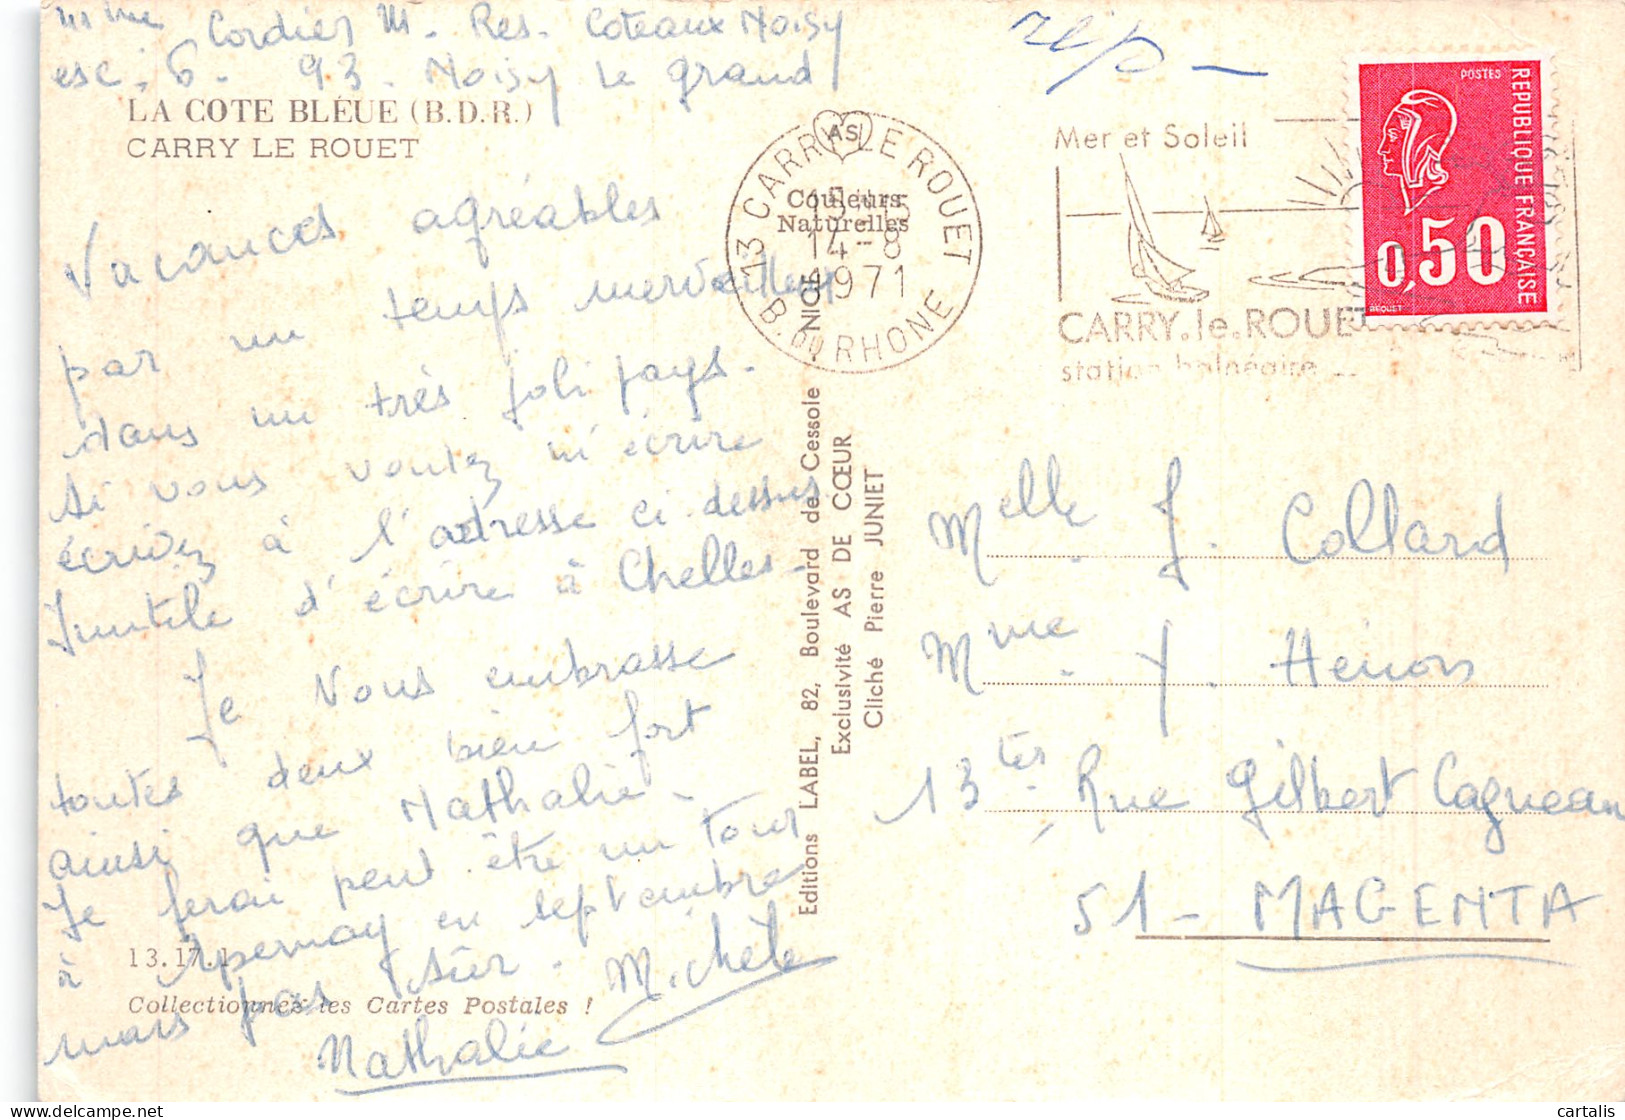 Mme Cordier M. Res. Coteaux Noisy
esc. 6 - 93 - Noisy le grand
LA COTE BLEUE (B.D.R.)
CARRY LE ROUET
Vacances agréables
par un temps merveilleux
dans un très joli pays.
Si vous voulez m'écrire
écrivez à l'adresse ci dessus
Inutile d'écrire à Chelles.
Je vous embrasse
toutes deux bien fort
ainsi que Nathalie.
Je ferai peut être un tour
à Epernay en septembre
mais pas sûr. Michèle
Nathalie
13.17.1
Collectionnez les Cartes Postales !
AS
Couleurs
Naturelles
NICE
Editions LABEL, 82, Boulevard de Cessole
Exclusivité AS DE CŒUR
Cliché Pierre JUNIET
13 CARRY LE ROUET
14-8
1971
B. DU RHONE
rép -
Mer et Soleil
CARRY.le.ROUET
station balnéaire
POSTES
REPUBLIQUE FRANÇAISE
0,50
BEQUET
Melle J. Collard
Mme Y. Henon
13 ter Rue Gilbert Cagneaux
51 - MAGENTA
cartalis